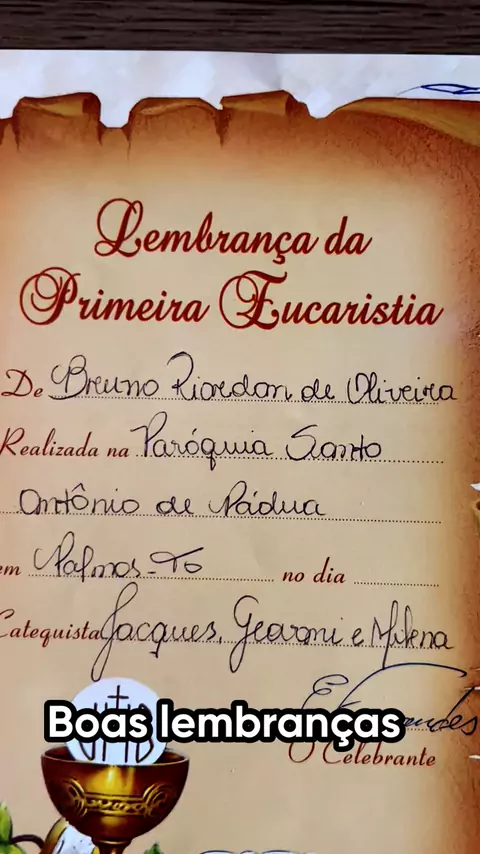 Lembrança da
Primeira Eucaristia
De Bruno Riordan de Oliveira
Realizada na Paróquia Santo
Antônio de Pádua
em Palmas-To no dia
Catequista Jacques, Geovani e Milena
Boas lembranças
O Celebrante